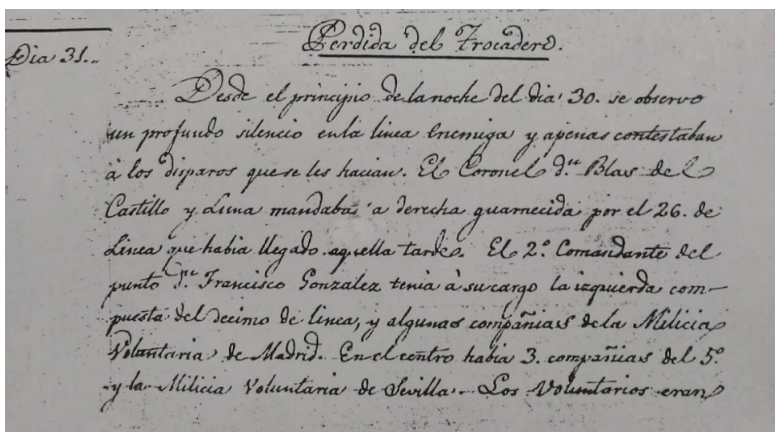 Perdida del Trocadero.
Dia 31..
Desde el principio de la noche del dia 30. se observo
un profundo silencio en la linea Enemiga y apenas contestaban
à los disparos que se les hacian. El Coronel d.n Blas del
Castillo y Luna mandaba a derecha guarnecida por el 26. de
Linea que habia llegado aquella tarde. El 2.o Comandante del
punto d.n Francisco Gonzalez tenia à su cargo la izquierda com-
puesta del decimo de linea, y algunas compañias de la Milicia
Voluntaria de Madrid. En el centro habia 3. compañias del 5.o
y la Milicia Voluntaria de Sevilla. Los Voluntarios eran